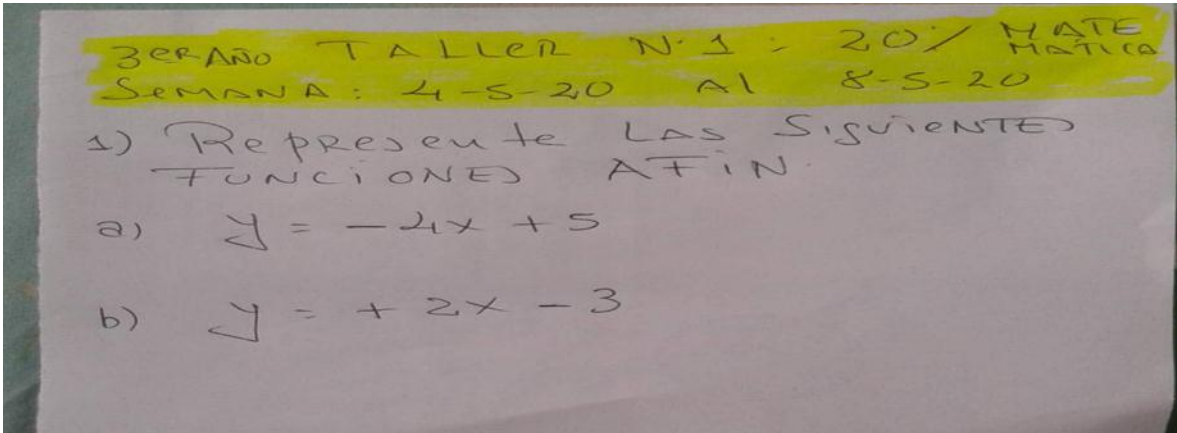 3ER AÑO TALLER N·1 : 20% MATE
MATICA
SEMANA : 4-5-20 Al 8-5-20
1) Represente LAS SIGUIENTES
FUNCIONES AFIN.
a) y = -4x + 5
b) y = + 2x - 3